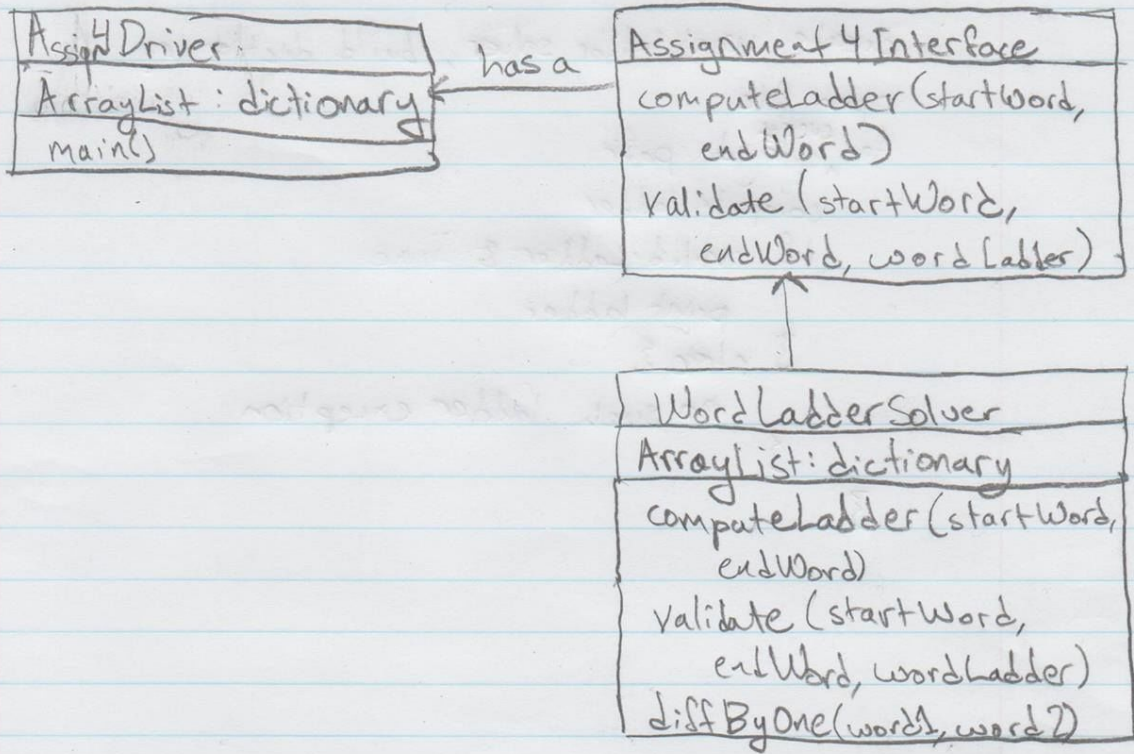 Assign4Driver
ArrayList: dictionary
main()
has a
Assignment4Interface
computeLadder(startWord,
endWord)
validate (startWord,
endWord, wordLadder)
WordLadderSolver
ArrayList: dictionary
computeLadder(startWord,
endWord)
validate (startWord,
endWord, wordLadder)
diffByOne(word1, word2)